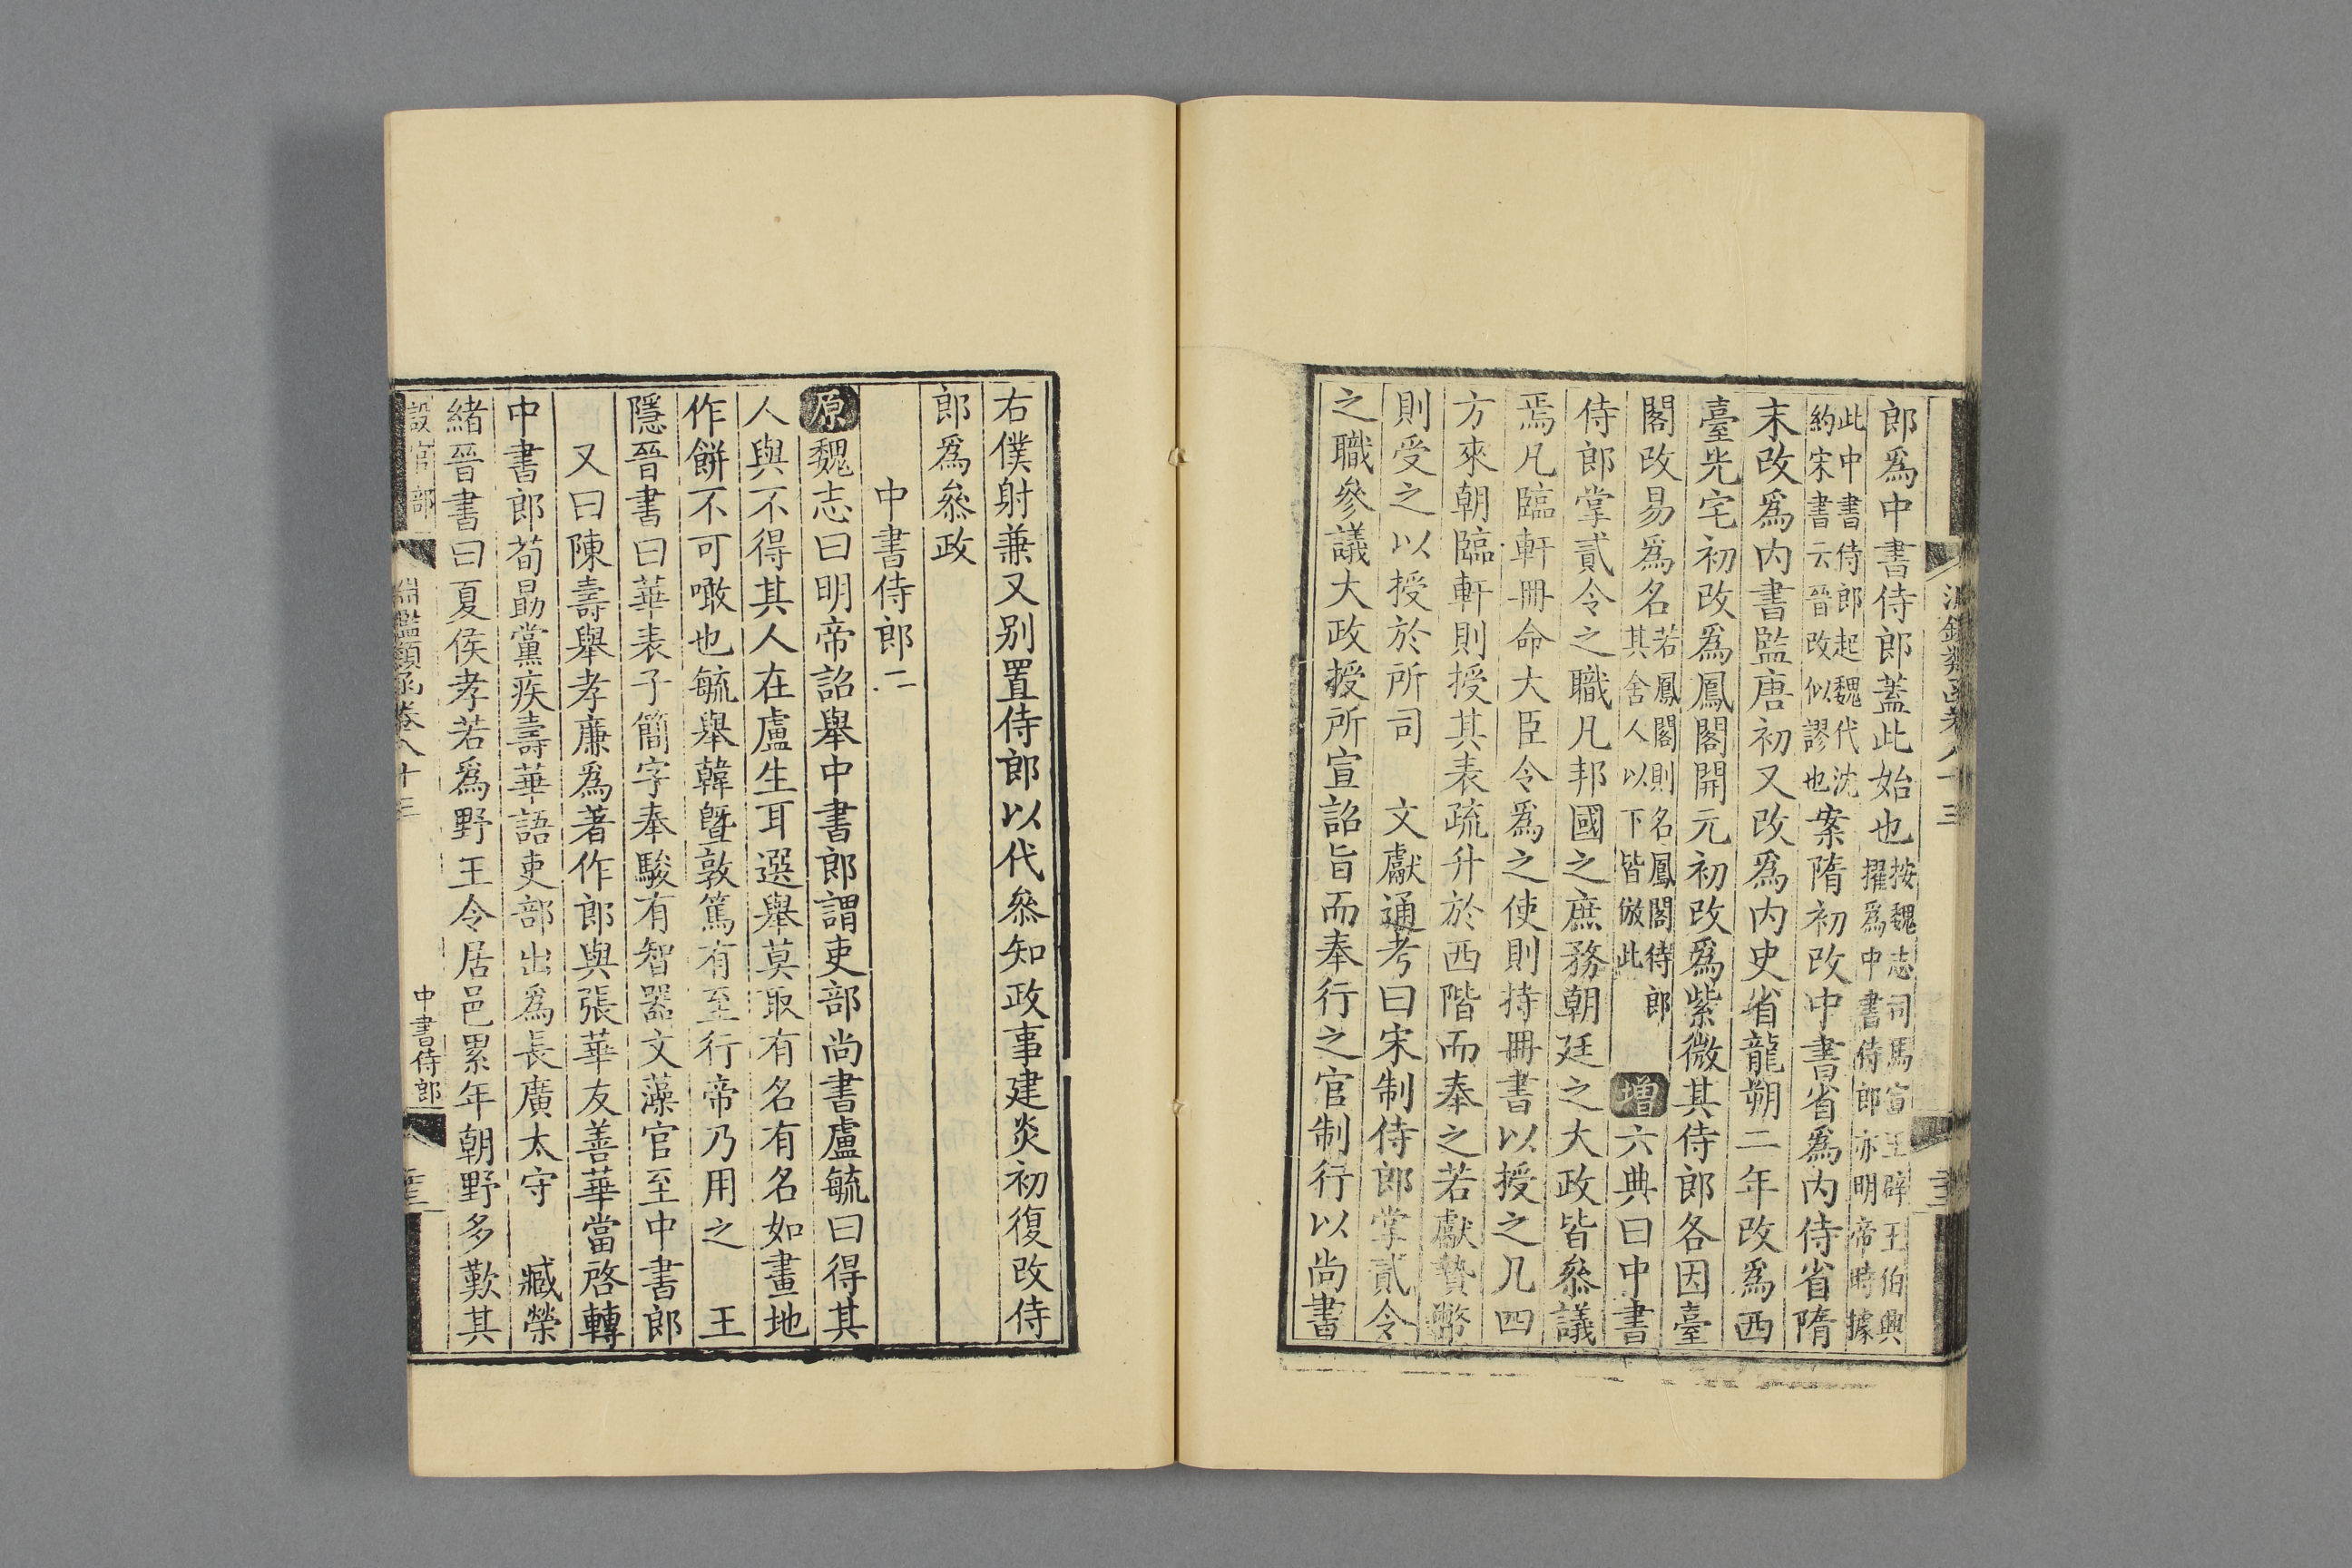 郎爲中書侍郎蓋此始也按魏志司馬宣王辟王伯輿擢爲中書侍郎亦明帝時據
此中書侍郎起魏代沈約宋書云晉改似謬也案隋初改中書省爲內侍省隋
末改爲內書監唐初又改爲內史省龍朔二年改爲西
臺光宅初改爲鳳閣開元初改爲紫微其侍郎各因臺
閣改易爲名若鳳閣則名鳳閣侍郎其舍人以下皆倣此 增六典曰中書
侍郎掌貳令之職凡邦國之庶務朝廷之大政皆叅議
焉凡臨軒冊命大臣令爲之使則持冊書以授之凡四
方來朝臨軒則授其表疏升於西階而奉之若獻贄幣
則受之以授於所司 文獻通考曰宋制侍郎掌貳令
之職參議大政授所宣詔旨而奉行之官制行以尚書
右僕射兼又别置侍郎以代叅知政事建炎初復改侍
郎爲叅政
中書侍郎二
原魏志曰明帝詔舉中書郎謂吏部尚書盧毓曰得其
人與不得其人在盧生耳選舉莫取有名有名如畫地
作餅不可噉也毓舉韓曁敦篤有至行帝乃用之 王
隱晉書曰華表子簡字奉駿有智器文藻官至中書郎
又曰陳壽舉孝廉爲著作郎與張華友善華當啓轉
中書郎荀勗黨疾壽華語吏部出爲長廣太守 臧榮
緒晉書曰夏侯孝若爲野王令居邑累年朝野多歎其
設官部 淵鑑類函卷八十三 中書侍郎